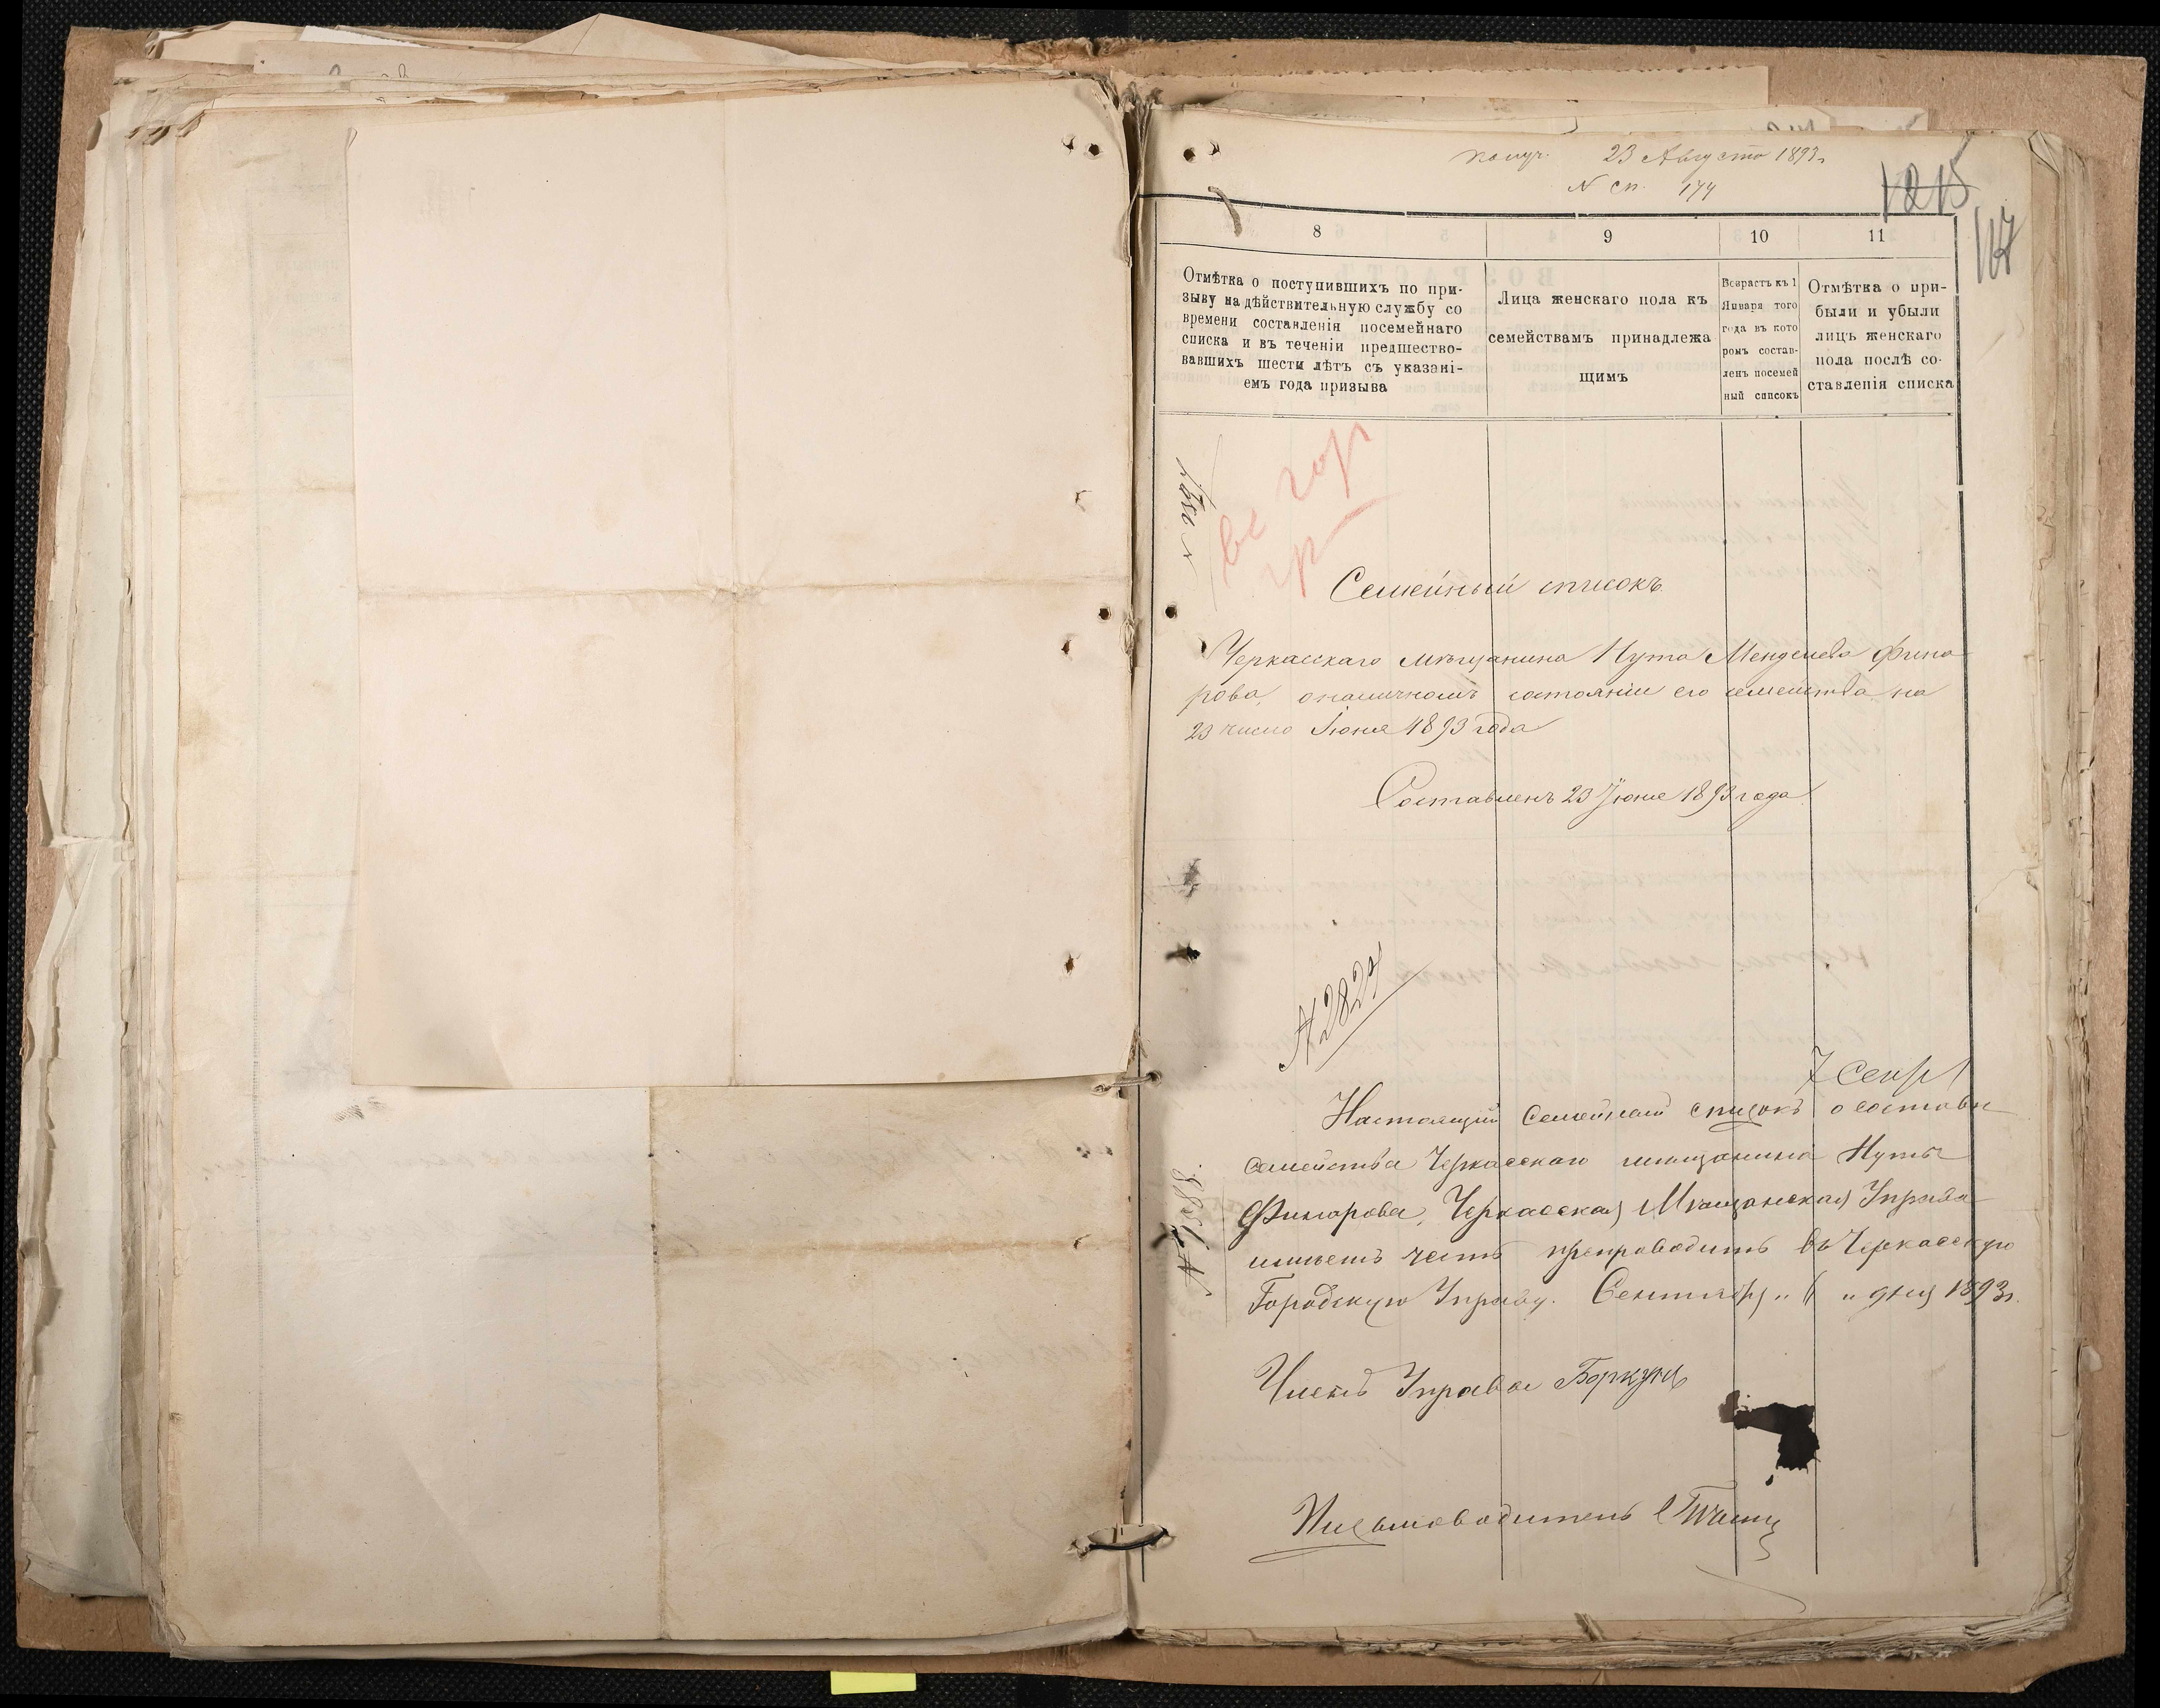 получ. 23 Августа 1893 г.
N сп. 174
1215
167
8 9 10 11
Отмѣтка о поступившихъ по при-
зыву на дѣйствительную службу со
времени составленія посемейнаго
списка и въ теченіи предшество-
вавшихъ шести лѣтъ съ указані-
емъ года призыва
Лица женскаго пола къ
семействамъ принадлежа
щимъ
Возрастъ къ 1
Января того
года въ кото
ромъ состав-
ленъ посемей
ный списокъ
Отмѣтка о при-
были и убыли
лицъ женскаго
пола послѣ со-
ставленія списка
Семейный списокъ
Черкасскаго мѣщанина Нута Менделева Фина
рова, о наличномъ состояніи его семейства на
23 число Іюня 1893 года
Составленъ 23 Іюня 1893 года
7 Сент
Настоящій Семейный списокъ о составѣ
семейства Черкасскаго мѣщанина Нуты
Финарова, Черкасская Мѣщанская Управа
имѣетъ честь препроводить въ Черкасскую
Городскую Управу. Сентября " 6 " дня 1893 г.
Членъ Управы
Письмоводитель